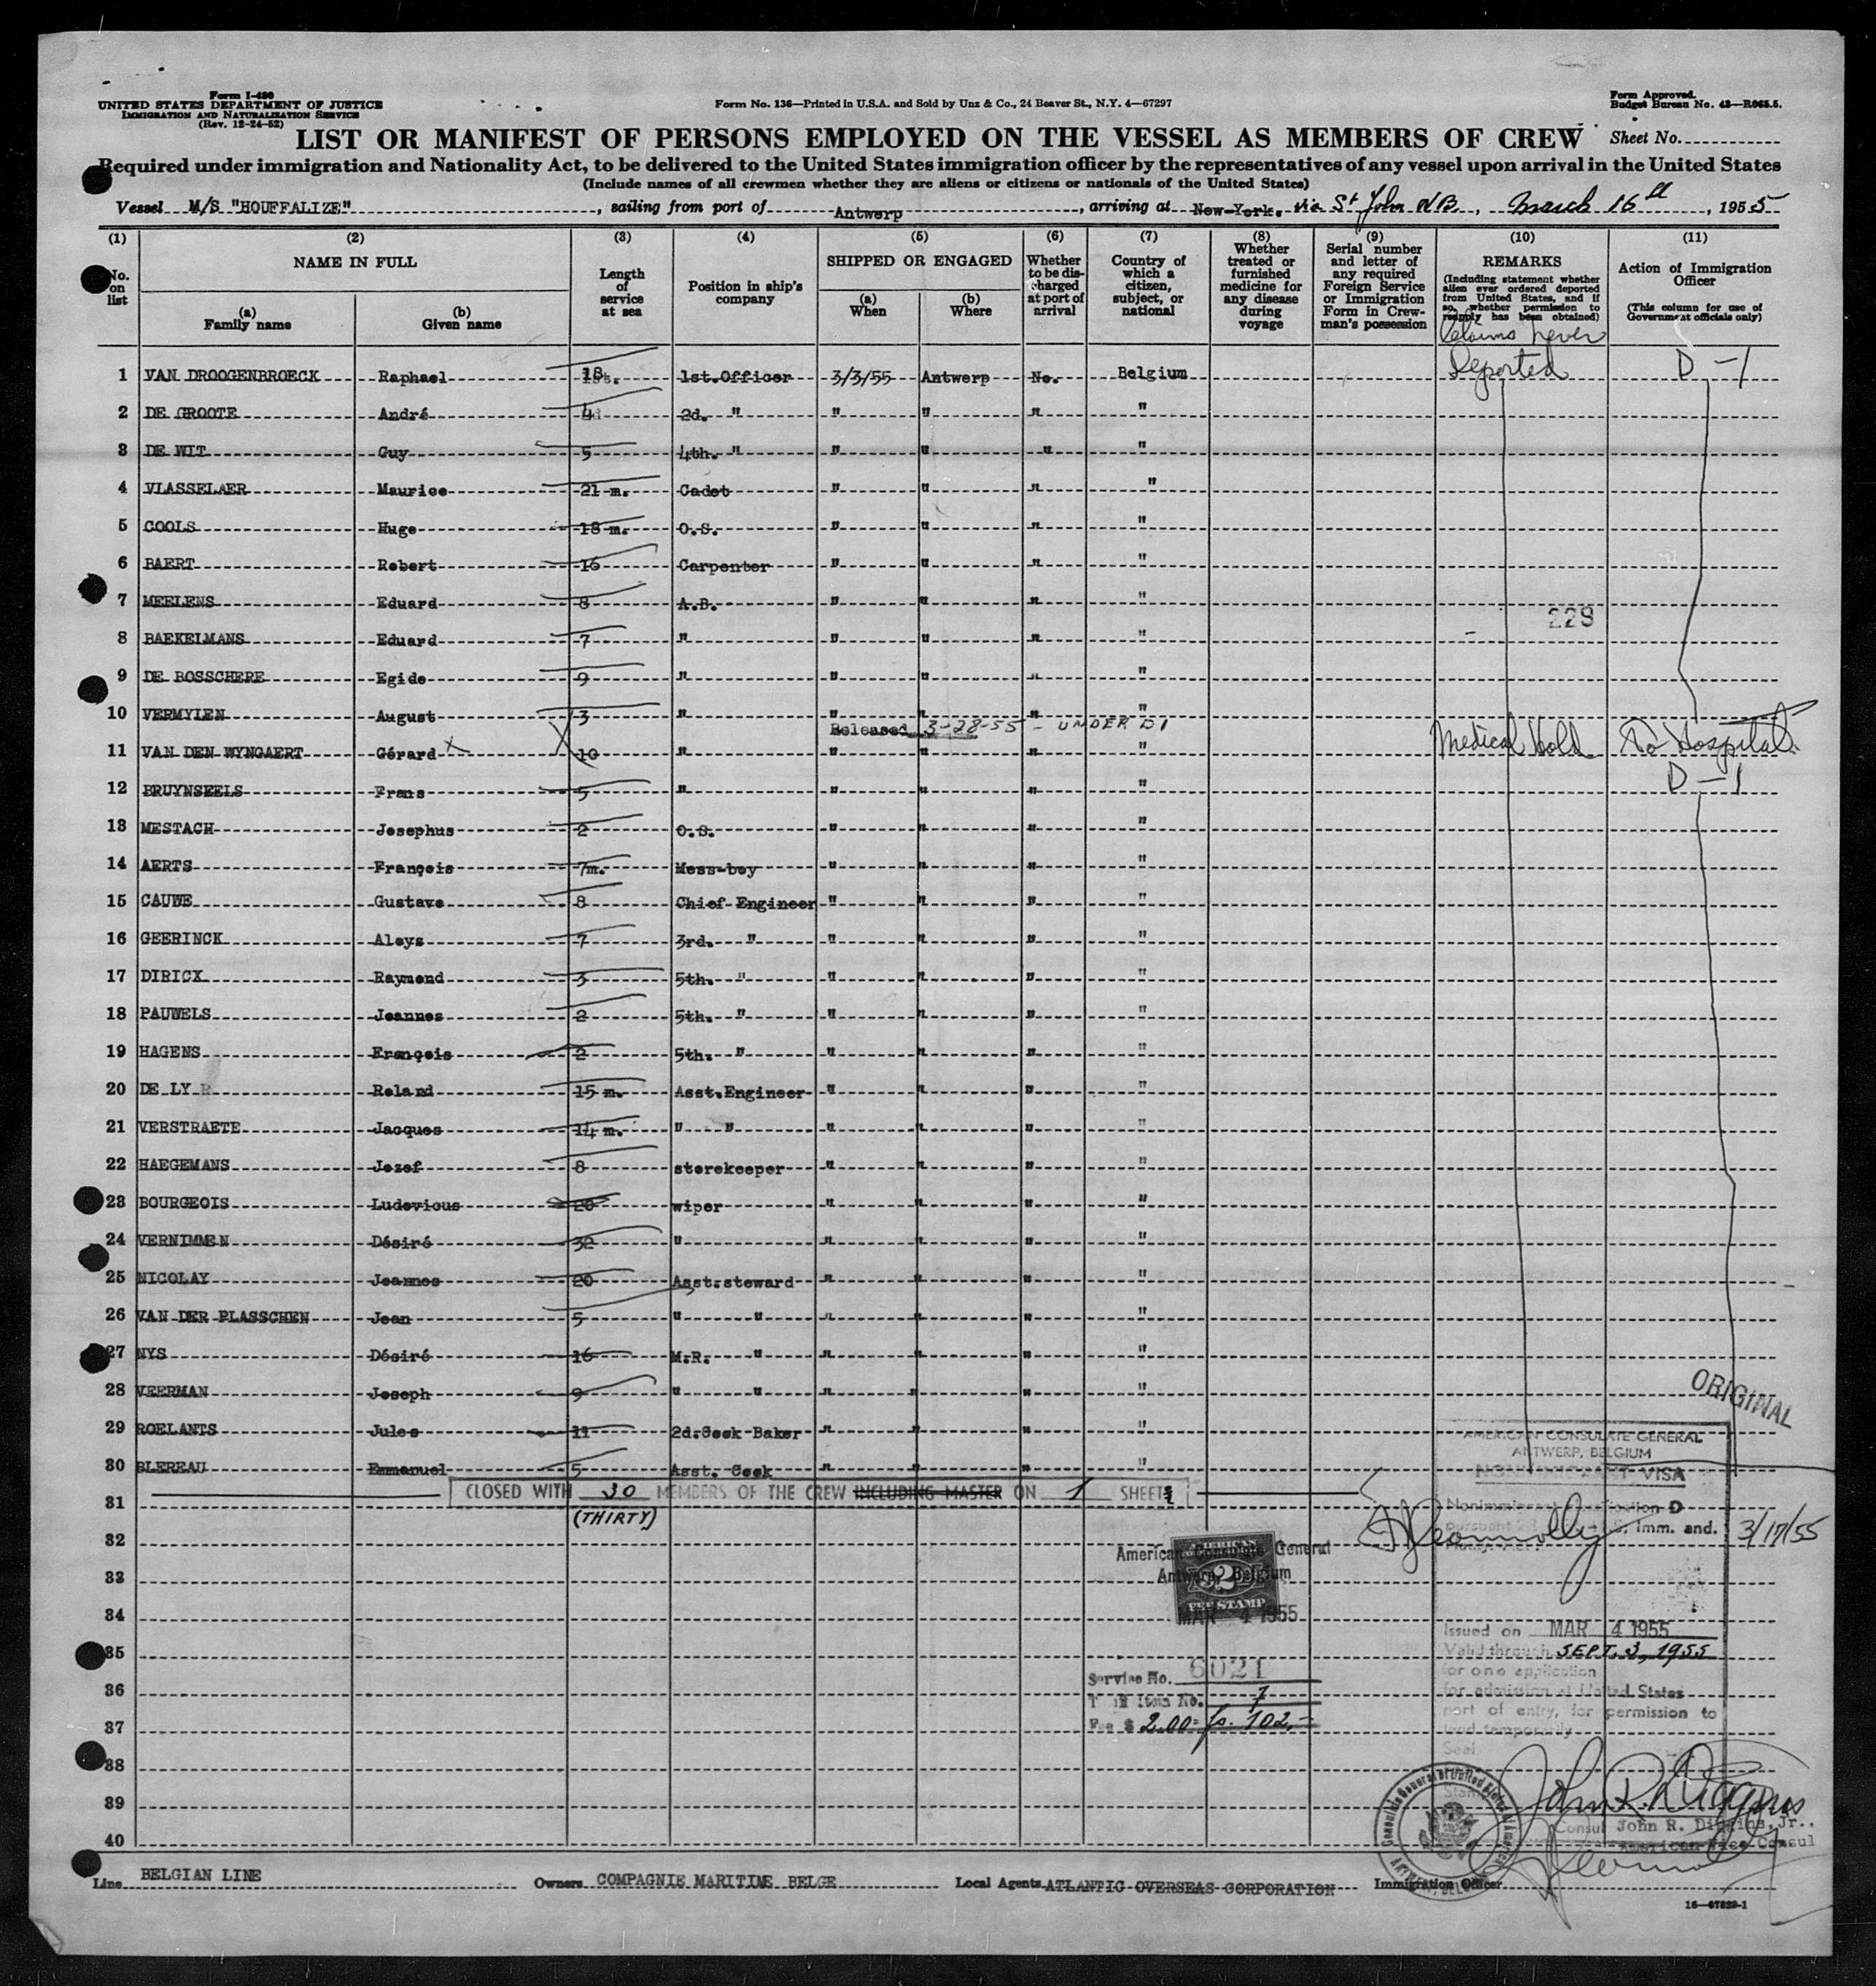 Form I-480
UNITED STATES DEPARTMENT OF JUSTICE
IMMIGRATION AND NATURALIZATION SERVICE
(Rev. 12-24-52)
Form No. 136—Printed in U.S.A. and Sold by Unz & Co., 24 Beaver St., N.Y. 4—67297
Form Approved.
Budget Bureau No. 43—R065.5.
LIST OR MANIFEST OF PERSONS EMPLOYED ON THE VESSEL AS MEMBERS OF CREW Sheet No.
Required under immigration and Nationality Act, to be delivered to the United States immigration officer by the representatives of any vessel upon arrival in the United States
(Include names of all crewmen whether they are aliens or citizens or nationals of the United States)
Vessel M/S "HOUFFALIZE", sailing from port of Antwerp, arriving at New-York. via St John NB, March 16th, 1955
(1) (2) (3) (4) (5) (6) (7) (8) (9) (10) (11)
No. on list
NAME IN FULL
(a) Family name
(b) Given name
Length of service at sea
Position in ship's company
SHIPPED OR ENGAGED
(a) When
(b) Where
Whether to be discharged at port of arrival
Country of which a citizen, subject, or national
Whether treated or furnished medicine for any disease during voyage
Serial number and letter of any required Foreign Service or Immigration Form in Crewman's possession
REMARKS
(Including statement whether alien ever ordered deported from United States, and if so, whether permission to reapply has been obtained)
Action of Immigration Officer
(This column for use of Government officials only)
Claims never
1 VAN DROOGENBROECK Raphael 18 1st.Officer 3/3/55 Antwerp No. Belgium Deported D-1
2 DE GROOTE André 4 2d. " " " " "
3 DE WIT Guy 5 4th. " " " " "
4 VLASSELAER Maurice 21 m. Cadet " " " "
5 COOLS Hugo 18 m. O.S. " " " "
6 BAERT Robert 16 Carpenter " " " "
7 MEELENS Eduard 8 A.B. " " " "
229
8 BAEKELMANS Eduard 7 " " " " "
9 DE BOSSCHERE Egide 9 " " " " "
10 VERMYLEN August 3 " " " " "
Released 3-28-55 - UNDER D1
11 VAN DEN WYNGAERT Gérard X 10 " " " " " Medical Hold To Hospital.
12 BRUYNSEELS Frans 5 " " " " " D-1
13 MESTACH Josephus 2 O.S. " " " "
14 AERTS François 7m. Mess-boy " " " "
15 CAUWE Gustave 8 Chief Engineer " " " "
16 GEERINCK Aloys 7 3rd. " " " " "
17 DIRICX Raymond 3 5th. " " " " "
18 PAUWELS Joannes 2 5th. " " " " "
19 HAGENS François 2 5th. " " " " "
20 DE LY Roland 15 m. Asst.Engineer " " " "
21 VERSTRAETE Jacques 14 m. " " " " " "
22 HAEGEMANS Jozef 8 storekeeper " " " "
23 BOURGEOIS Ludovicus 20 wiper " " " "
24 VERNIMMEN Désiré 32 " " " " "
25 NICOLAY Joannes 20 Asst.steward " " " "
26 VAN DER PLASSCHEN Jean 5 " " " " " "
27 NYS Désiré 16 M.R. " " " " "
28 VEERMAN Joseph 9 " " " " " "
ORIGINAL
29 ROELANTS Jules 11 2d.Cook Baker " " " "
30 BLEREAU Emmanuel 5 Asst. Cook " " " "
AMERICAN CONSULATE GENERAL
ANTWERP, BELGIUM
NONIMMIGRANT VISA
CLOSED WITH 30 MEMBERS OF THE CREW INCLUDING MASTER ON 1 SHEETS
(THIRTY)
Nonimmigrant Classification D
Imm. and.
3/17/55
31
32
33
34
35
36
37
38
39
40
American Consulate General
Antwerp, Belgium
AMERICAN
2
FEE STAMP
MAR 4 1955
Issued on MAR 4 1955
Valid through SEPT. 3, 1955
for one application
for admission at United States
port of entry, for permission to
land temporarily
Seal
Service No. 6021
Item No. 7
Fee $ 2.00 = fr. 102.-
John R. Diggins
Consul John R. Diggins, Jr..
American Vice Consul
Line BELGIAN LINE Owners COMPAGNIE MARITIME BELGE Local Agents ATLANTIC OVERSEAS CORPORATION Immigration Officer
16—67329-1